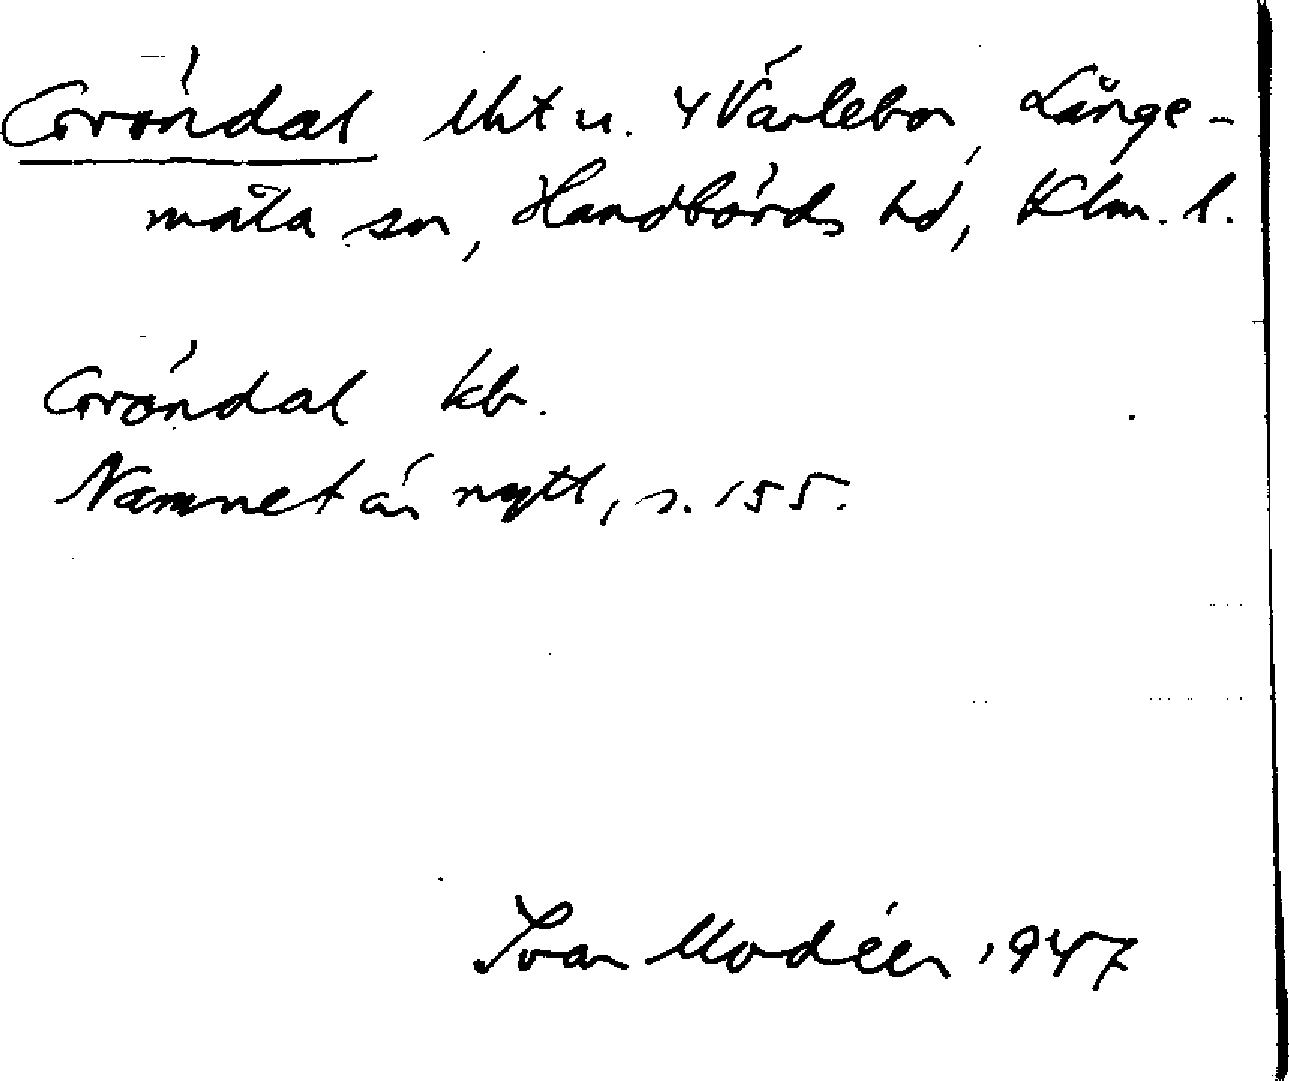 Gröndal lht u. 4 Värlebo, Långe-
måla sn, Handbörds hd, Klm. l.
Gröndal kb.
Namnet är nytt, s. 155.
Ivar Modéer 1947